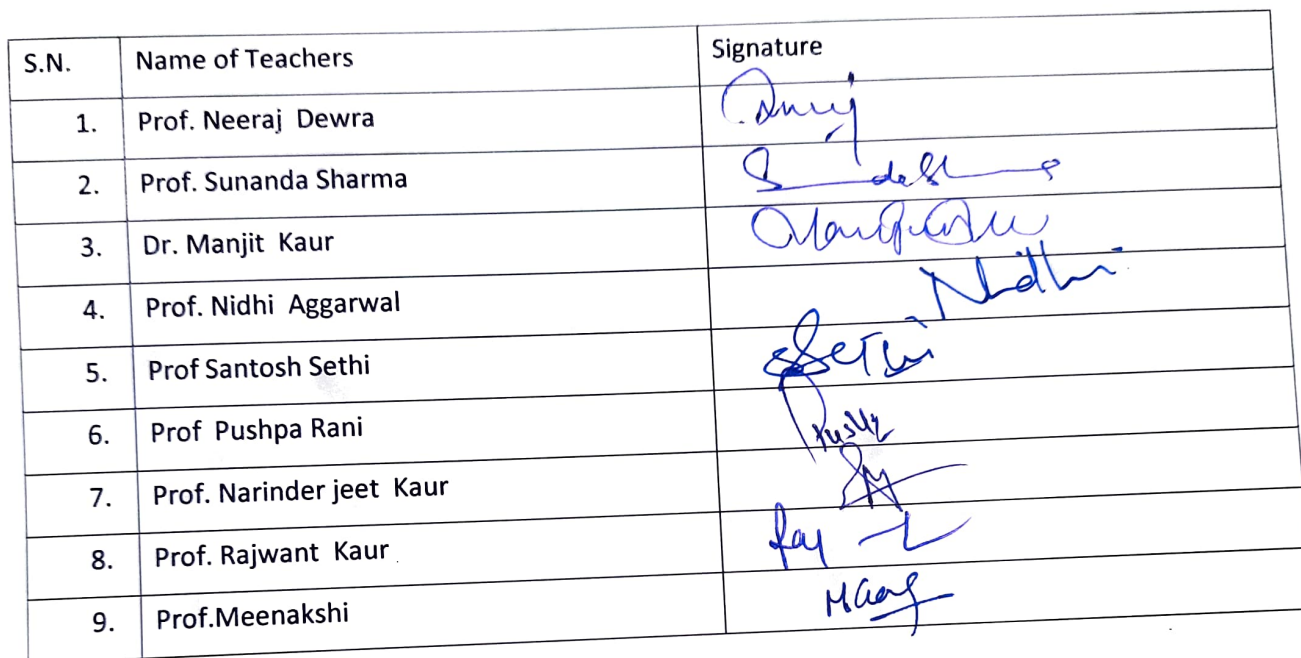 S.N. Name of Teachers Signature
1. Prof. Neeraj Dewra
2. Prof. Sunanda Sharma
3. Dr. Manjit Kaur
4. Prof. Nidhi Aggarwal Nidhi
5. Prof Santosh Sethi SSethi
6. Prof Pushpa Rani
7. Prof. Narinder jeet Kaur
8. Prof. Rajwant Kaur Raj
9. Prof.Meenakshi